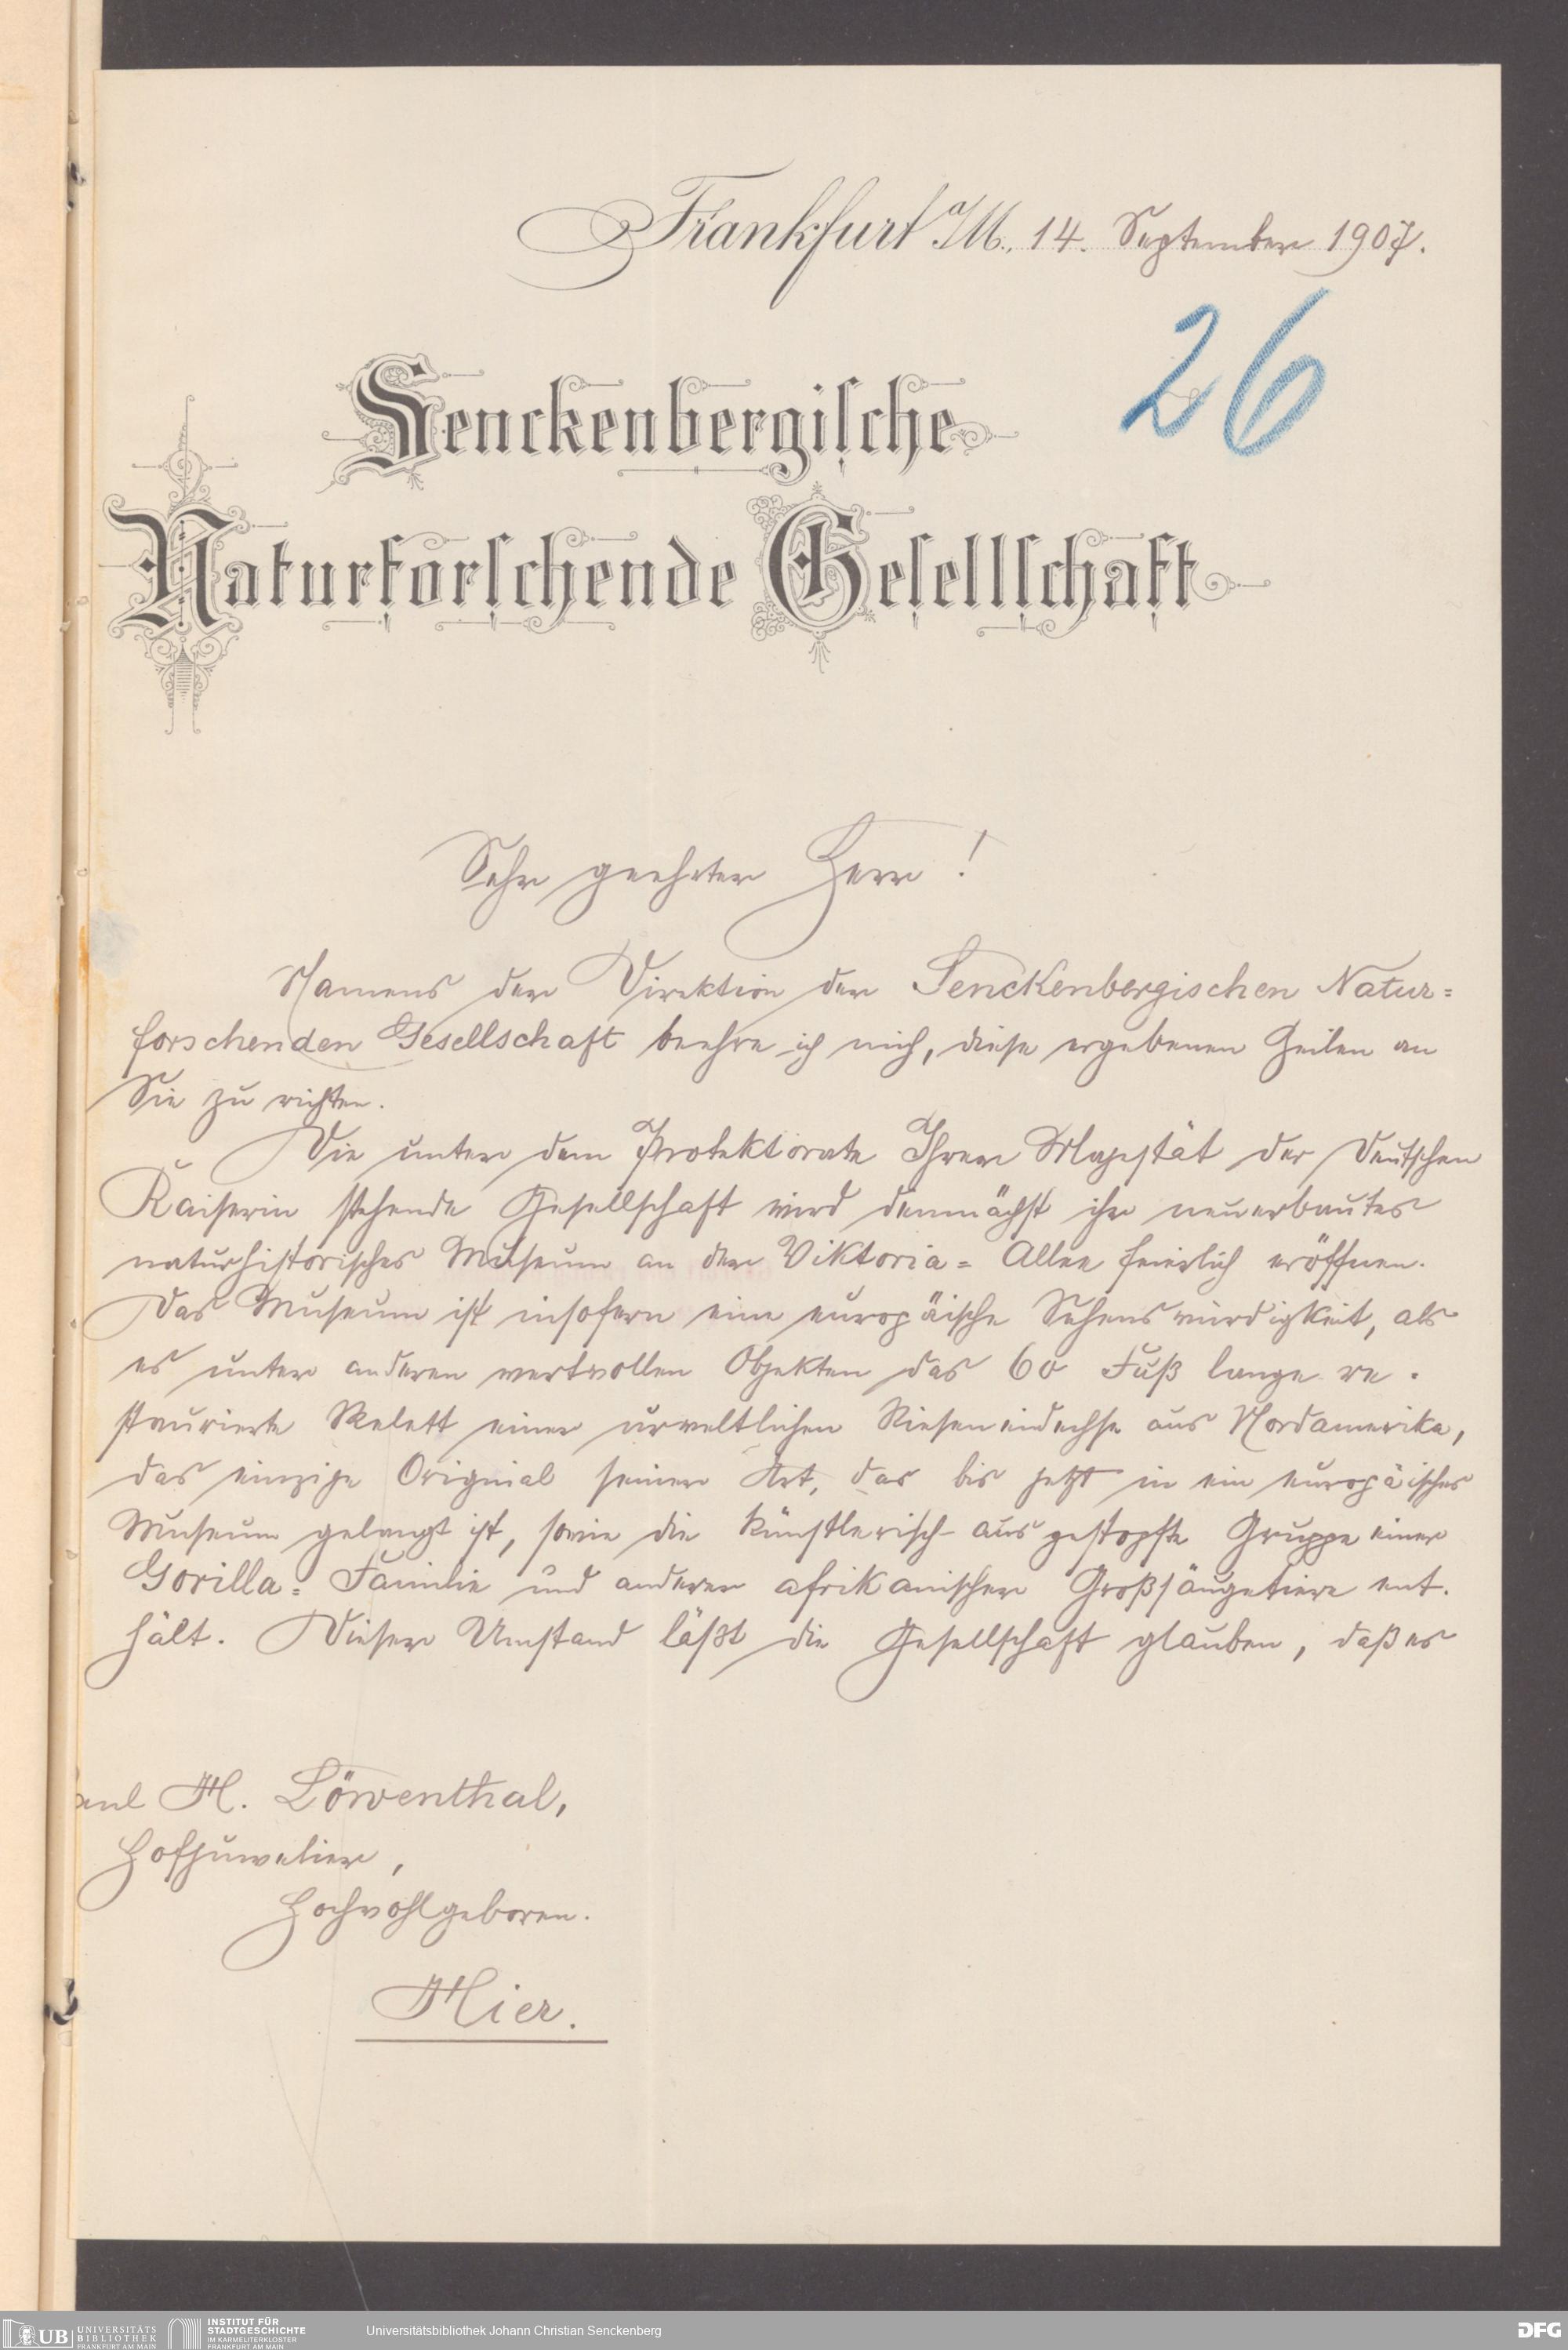 Frankfurt a/M., 14. September 1907.
26
Senckenbergische
Naturforschende Gesellschaft
Sehr geehrter Herr!
Namens der Direktion der Senckenbergischen Natur=
forschenden Gesellschaft beehre ich mich, diese ergebenen Zeilen an
Sie zu richten.
Die unter dem Protektorate Ihrer Majestät der Deutschen
Kaiserin stehende Gesellschaft wird demnächst ihr neuerbautes
naturhistorisches Museum an der Viktoria=Allee feierlich eröffnen.
Das Museum ist insofern eine europäische Sehenswürdigkeit, als
es unter anderen wertvollen Objekten das 60 Fuß lange re-
staurierte Skelett einer urweltlichen Rieseneidechse aus Nordamerika,
das einzige Original seiner Art, das bis jetzt in ein europäisches
Museum gelangt ist, sowie die künstlerisch ausgestopfte Gruppe einer
Gorilla=Familie und anderer afrikanischer Großsäugetiere ent-
hält. Dieser Umstand läßt die Gesellschaft glauben, daß es
H. Löwenthal,
Hofjuwelier,
Hochwohlgeboren.
Hier.
UB UNIVERSITÄTS
BIBLIOTHEK
FRANKFURT AM MAIN
INSTITUT FÜR
STADTGESCHICHTE
IM KARMELITERKLOSTER
FRANKFURT AM MAIN
Universitätsbibliothek Johann Christian Senckenberg
DFG